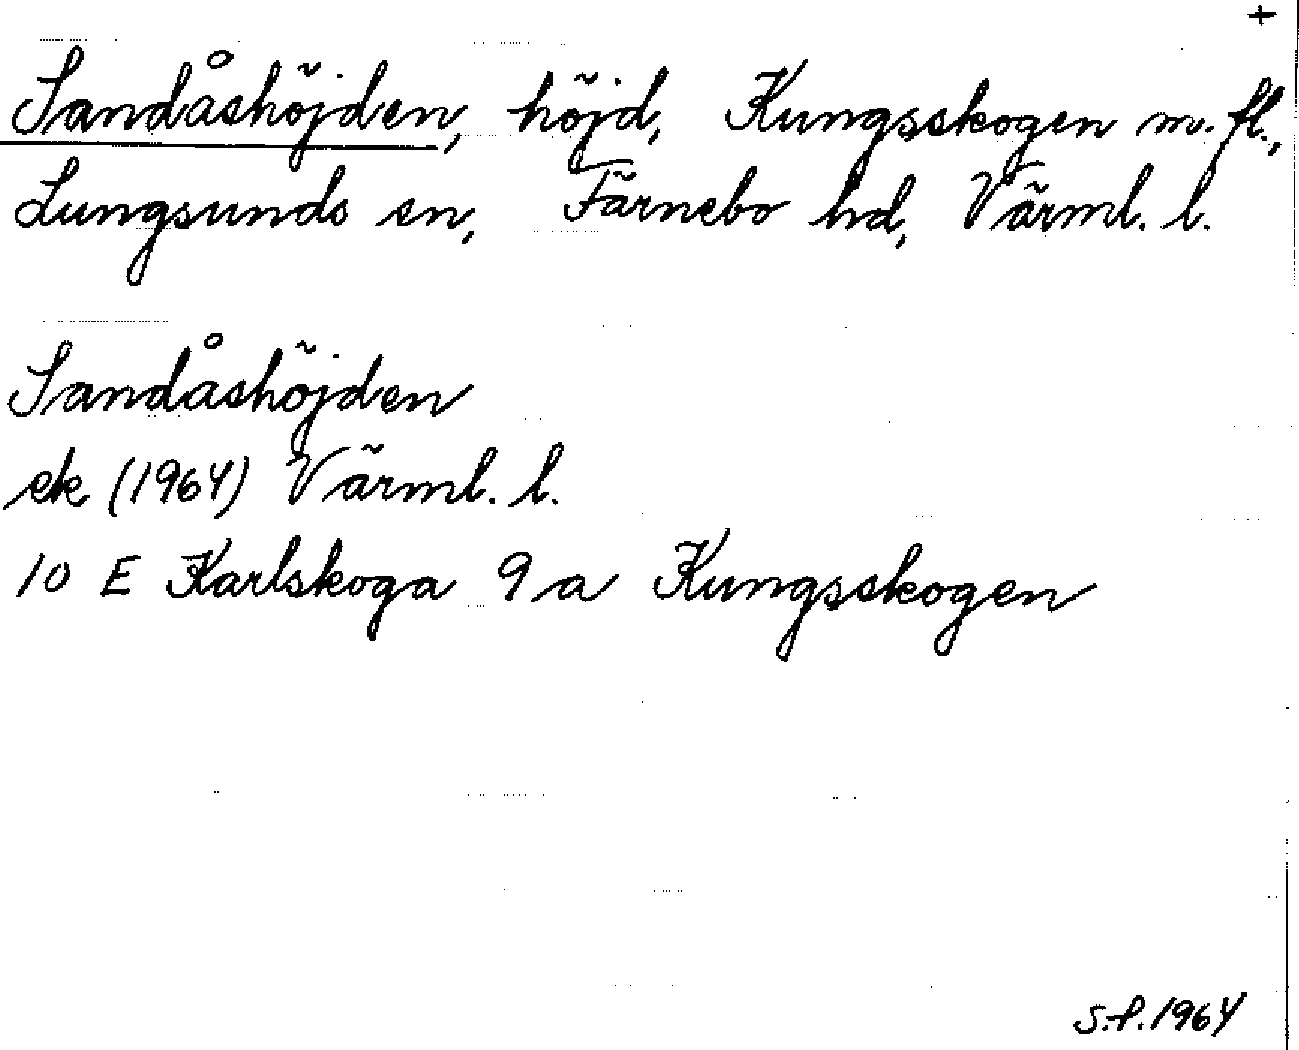 +
Sandåshöjden, höjd, Kungsskogen m. fl.,
Lungsunds sn, Färnebo hd, Värml. l.
Sandåshöjden
ek (1964) Värml. l.
10 E Karlskoga 9 a Kungsskogen
S.f. 1964